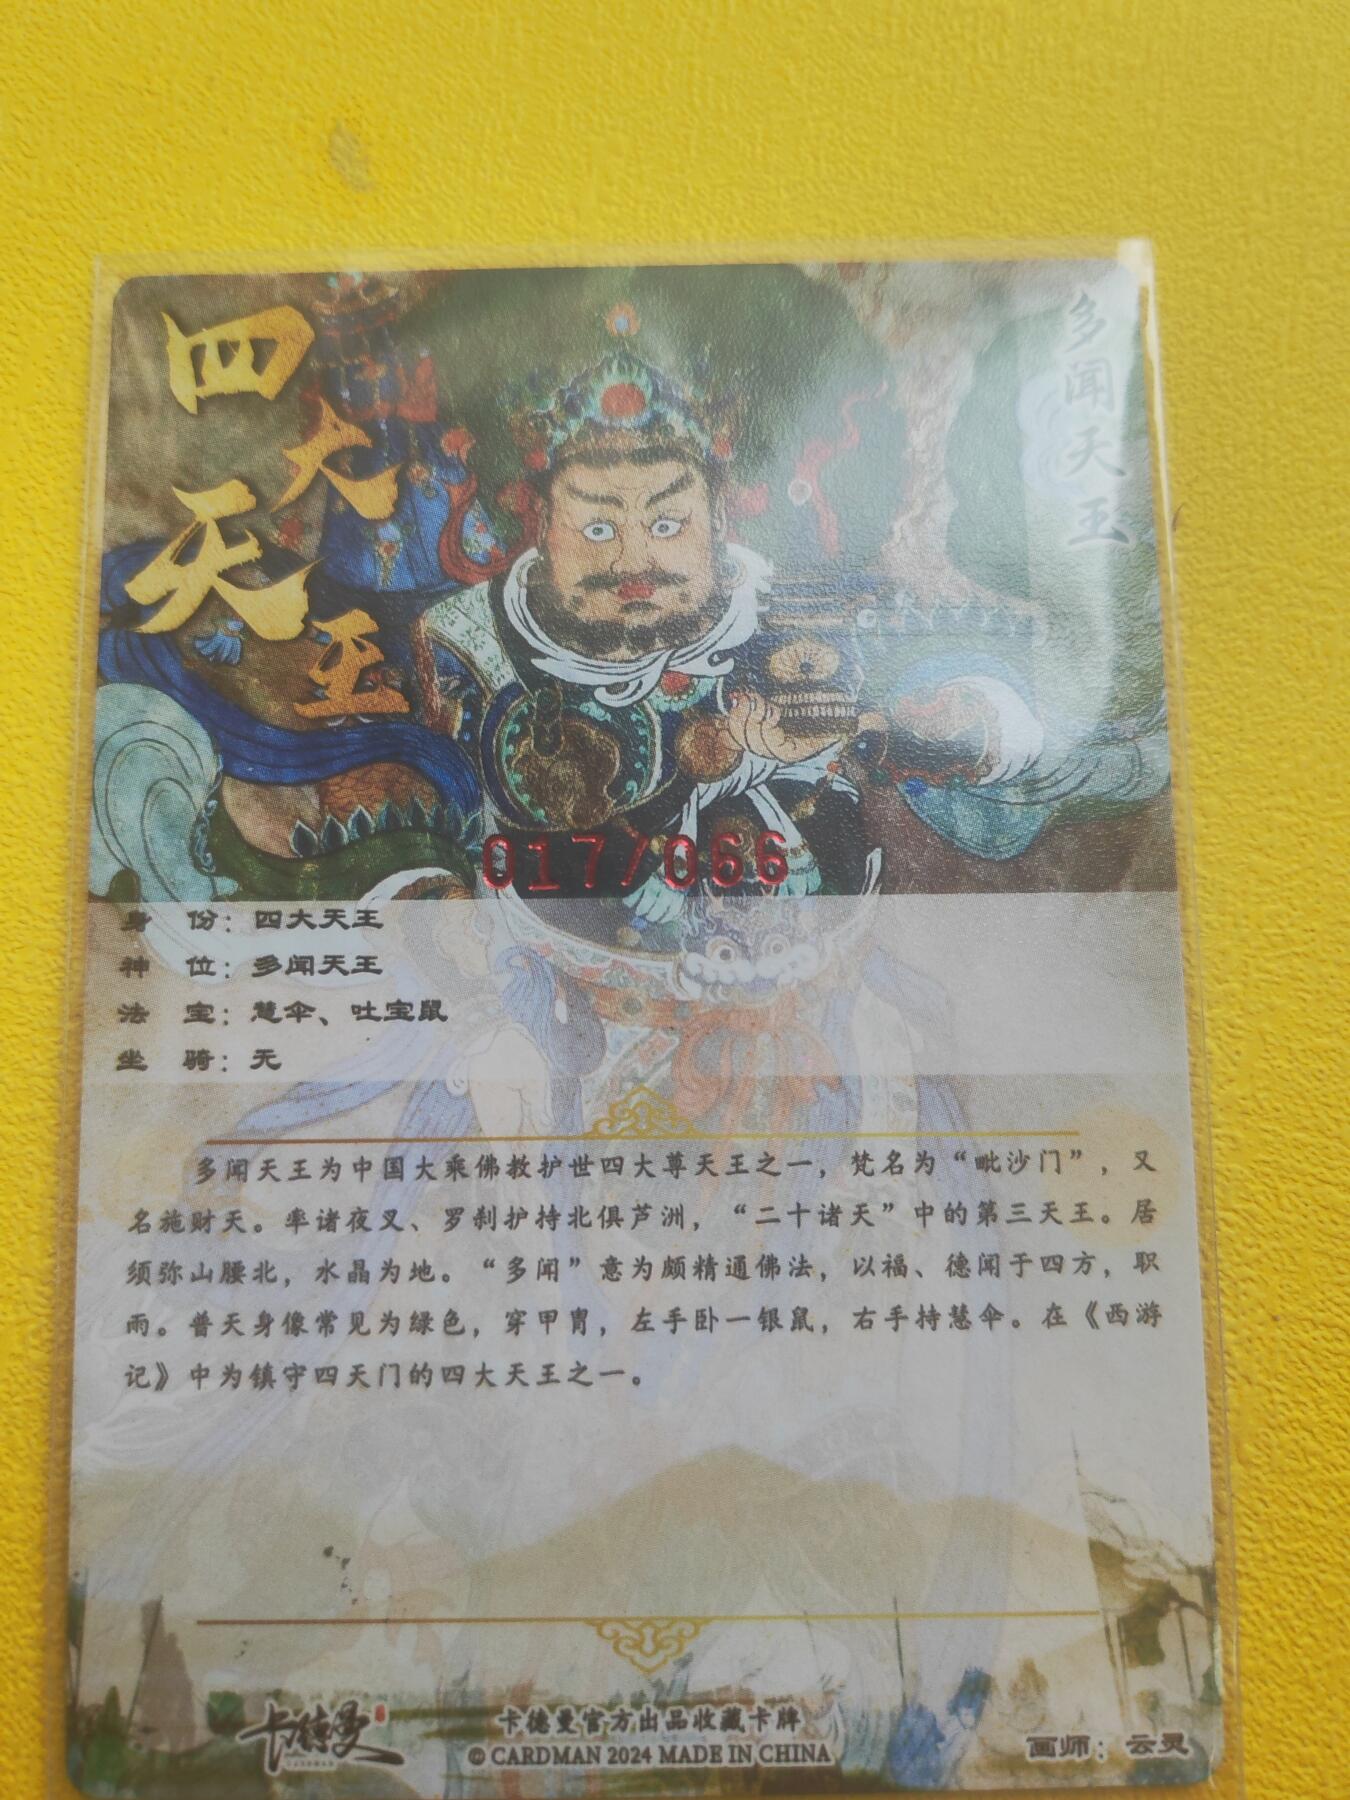 四大天王
多闻天王
017/066
身 份：四大天王
神 位：多闻天王
法 宝：慧伞、吐宝鼠
坐 骑：无
多闻天王为中国大乘佛教护世四大尊天王之一，梵名为“毗沙门”，又
名施财天。率诸夜叉、罗刹护持北俱芦洲，“二十诸天”中的第三天王。居
须弥山腰北，水晶为地。“多闻”意为颇精通佛法，以福、德闻于四方，职
雨。普天身像常见为绿色，穿甲胄，左手卧一银鼠，右手持慧伞。在《西游
记》中为镇守四天门的四大天王之一。
卡德曼
卡德曼官方出品收藏卡牌
© CARDMAN 2024 MADE IN CHINA
画师：云灵